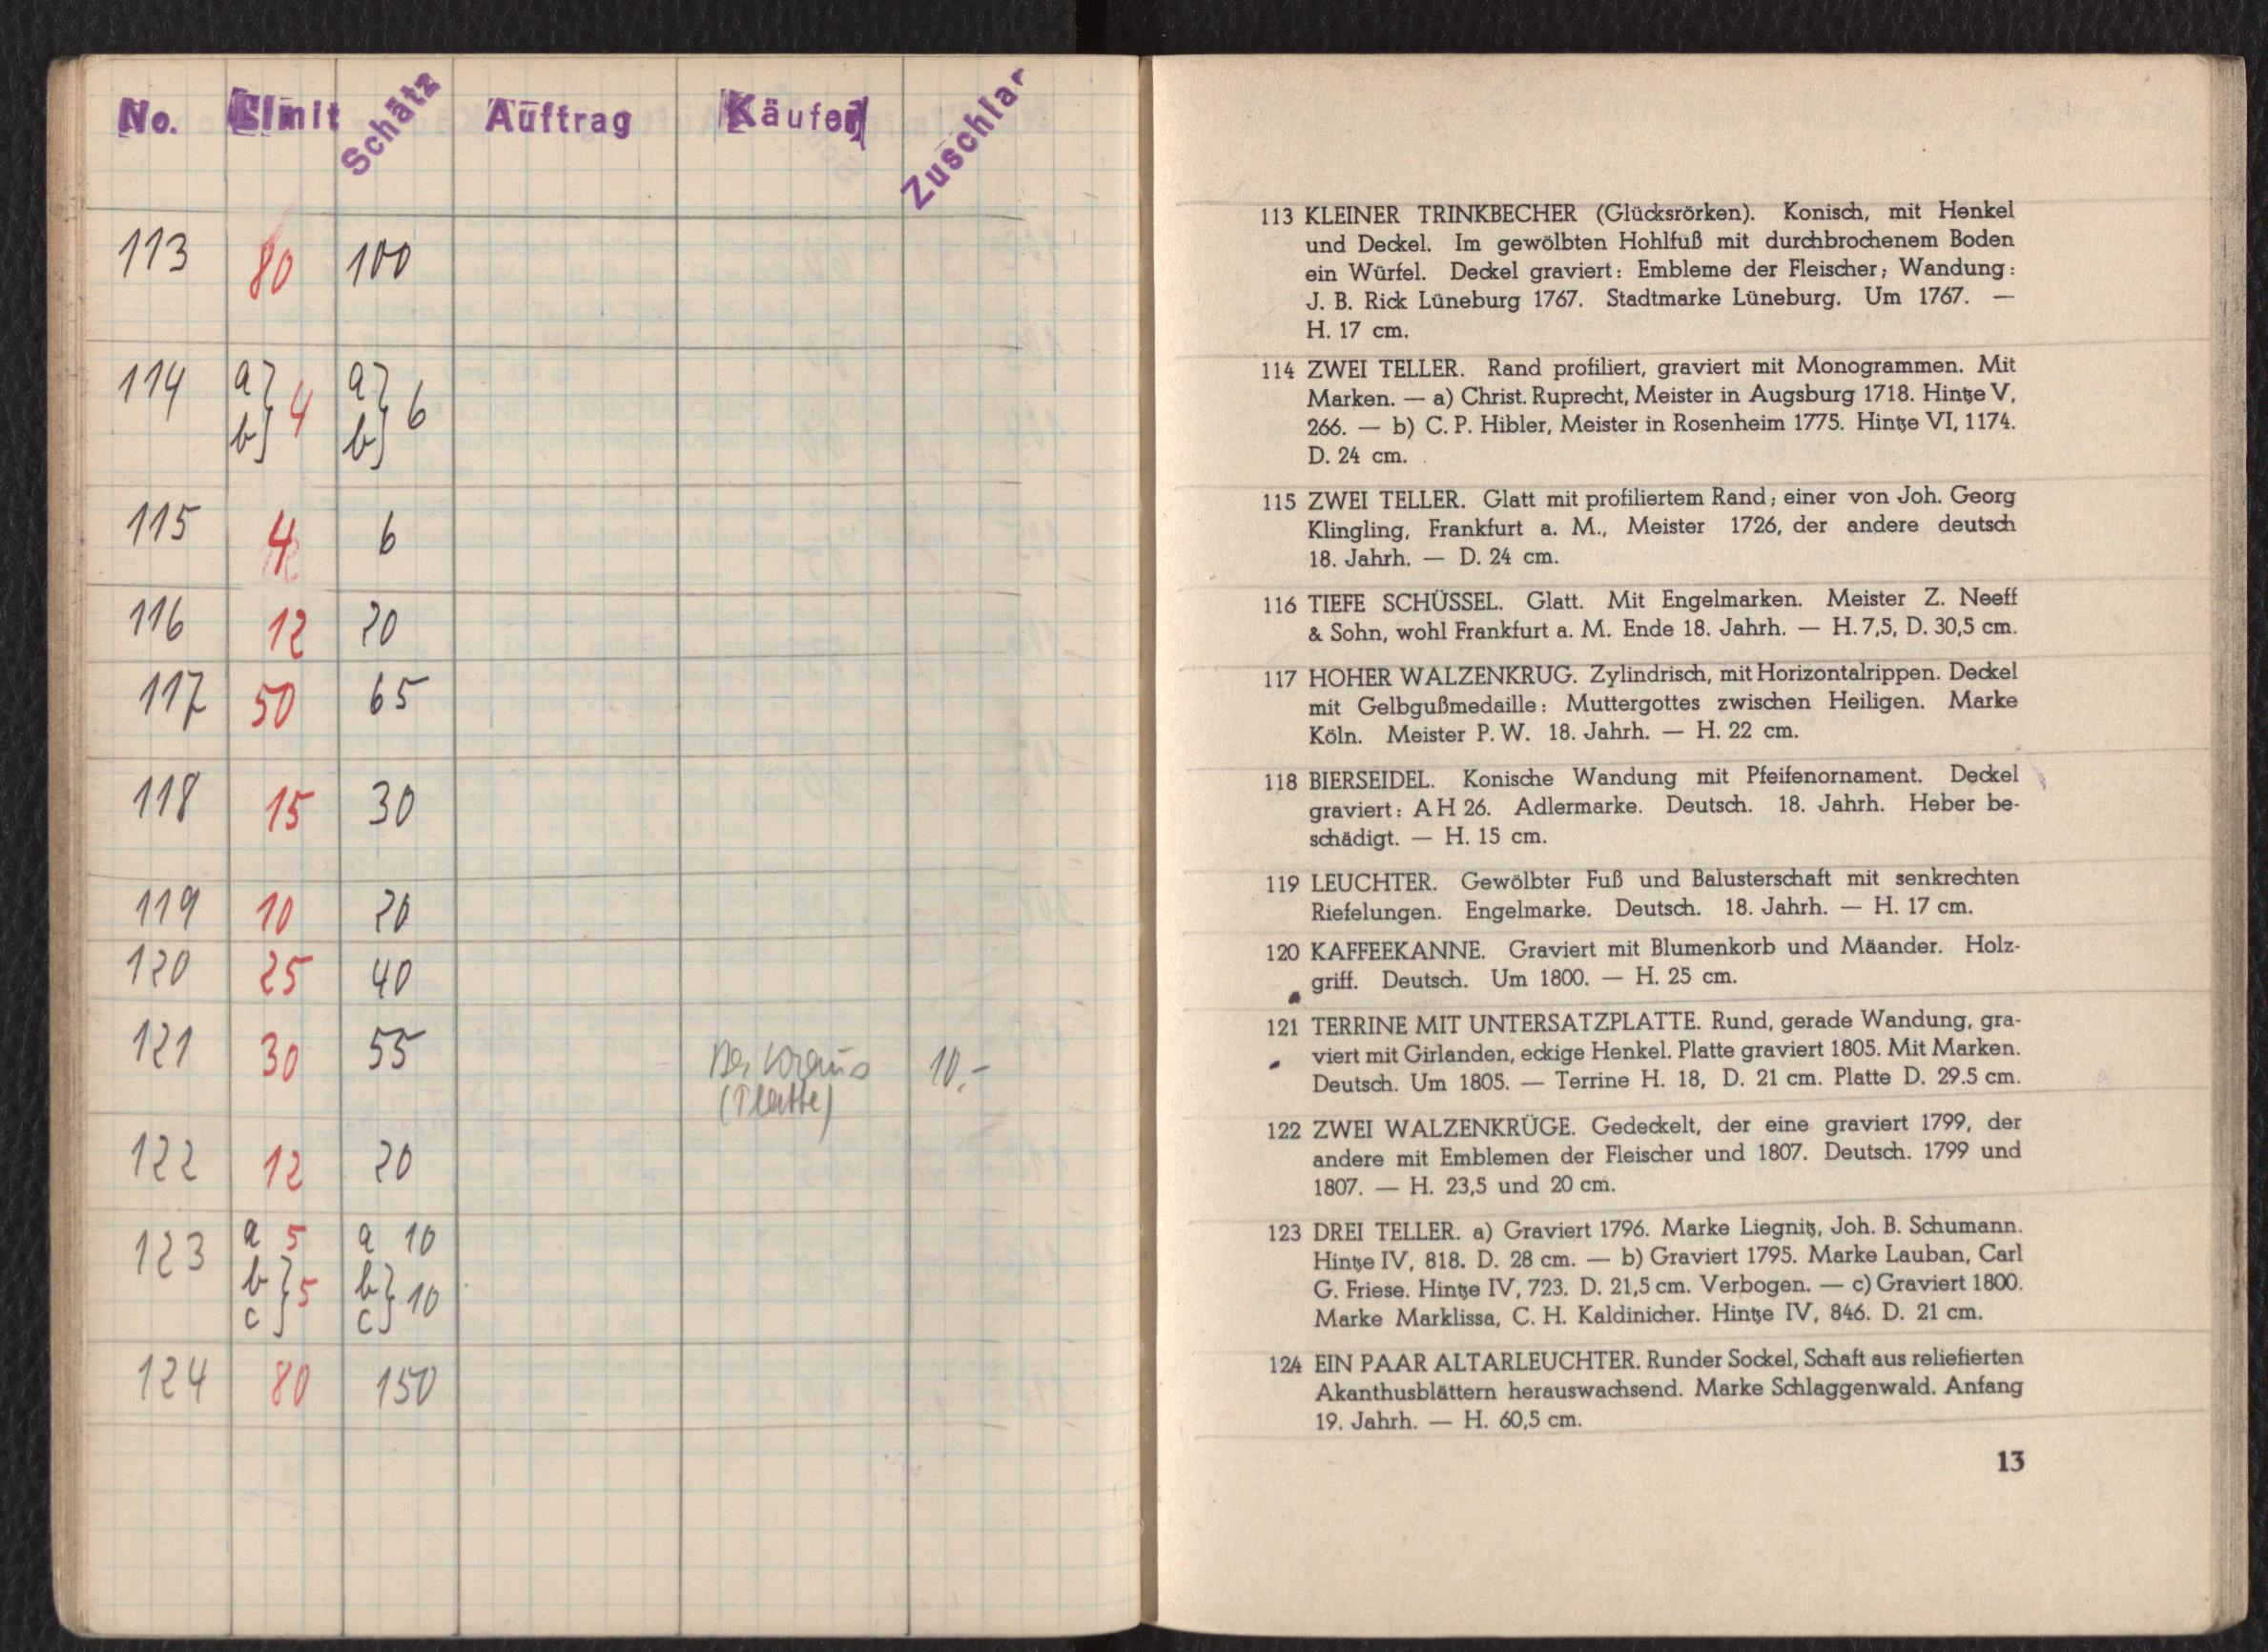 No. Limit Schätz Auftrag Käufer Zuschlag
113 80 100
114 a) b) 4 a) b) 6
115 4 6
116 12 20
117 50 65
118 15 30
119 10 20
120 25 40
121 30 55 10.-
(Platte)
122 12 20
123 a 5 a 10
b c } 5 b c } 10
124 80 150
113 KLEINER TRINKBECHER (Glücksrörken). Konisch, mit Henkel
und Deckel. Im gewölbten Hohlfuß mit durchbrochenem Boden
ein Würfel. Deckel graviert: Embleme der Fleischer; Wandung:
J. B. Rick Lüneburg 1767. Stadtmarke Lüneburg. Um 1767. —
H. 17 cm.
114 ZWEI TELLER. Rand profiliert, graviert mit Monogrammen. Mit
Marken. — a) Christ. Ruprecht, Meister in Augsburg 1718. Hintze V,
266. — b) C. P. Hibler, Meister in Rosenheim 1775. Hintze VI, 1174.
D. 24 cm.
115 ZWEI TELLER. Glatt mit profiliertem Rand; einer von Joh. Georg
Klingling, Frankfurt a. M., Meister 1726, der andere deutsch
18. Jahrh. — D. 24 cm.
116 TIEFE SCHÜSSEL. Glatt. Mit Engelmarken. Meister Z. Neeff
& Sohn, wohl Frankfurt a. M. Ende 18. Jahrh. — H. 7,5, D. 30,5 cm.
117 HOHER WALZENKRUG. Zylindrisch, mit Horizontalrippen. Deckel
mit Gelbgußmedaille: Muttergottes zwischen Heiligen. Marke
Köln. Meister P. W. 18. Jahrh. — H. 22 cm.
118 BIERSEIDEL. Konische Wandung mit Pfeifenornament. Deckel
graviert: A H 26. Adlermarke. Deutsch. 18. Jahrh. Heber be-
schädigt. — H. 15 cm.
119 LEUCHTER. Gewölbter Fuß und Balusterschaft mit senkrechten
Riefelungen. Engelmarke. Deutsch. 18. Jahrh. — H. 17 cm.
120 KAFFEEKANNE. Graviert mit Blumenkorb und Mäander. Holz-
griff. Deutsch. Um 1800. — H. 25 cm.
121 TERRINE MIT UNTERSATZPLATTE. Rund, gerade Wandung, gra-
viert mit Girlanden, eckige Henkel. Platte graviert 1805. Mit Marken.
Deutsch. Um 1805. — Terrine H. 18, D. 21 cm. Platte D. 29.5 cm.
122 ZWEI WALZENKRÜGE. Gedeckelt, der eine graviert 1799, der
andere mit Emblemen der Fleischer und 1807. Deutsch. 1799 und
1807. — H. 23,5 und 20 cm.
123 DREI TELLER. a) Graviert 1796. Marke Liegnitz, Joh. B. Schumann.
Hintze IV, 818. D. 28 cm. — b) Graviert 1795. Marke Lauban, Carl
G. Friese. Hintze IV, 723. D. 21,5 cm. Verbogen. — c) Graviert 1800.
Marke Marklissa, C. H. Kaldinicher. Hintze IV, 846. D. 21 cm.
124 EIN PAAR ALTARLEUCHTER. Runder Sockel, Schaft aus reliefierten
Akanthusblättern herauswachsend. Marke Schlaggenwald. Anfang
19. Jahrh. — H. 60,5 cm.
13